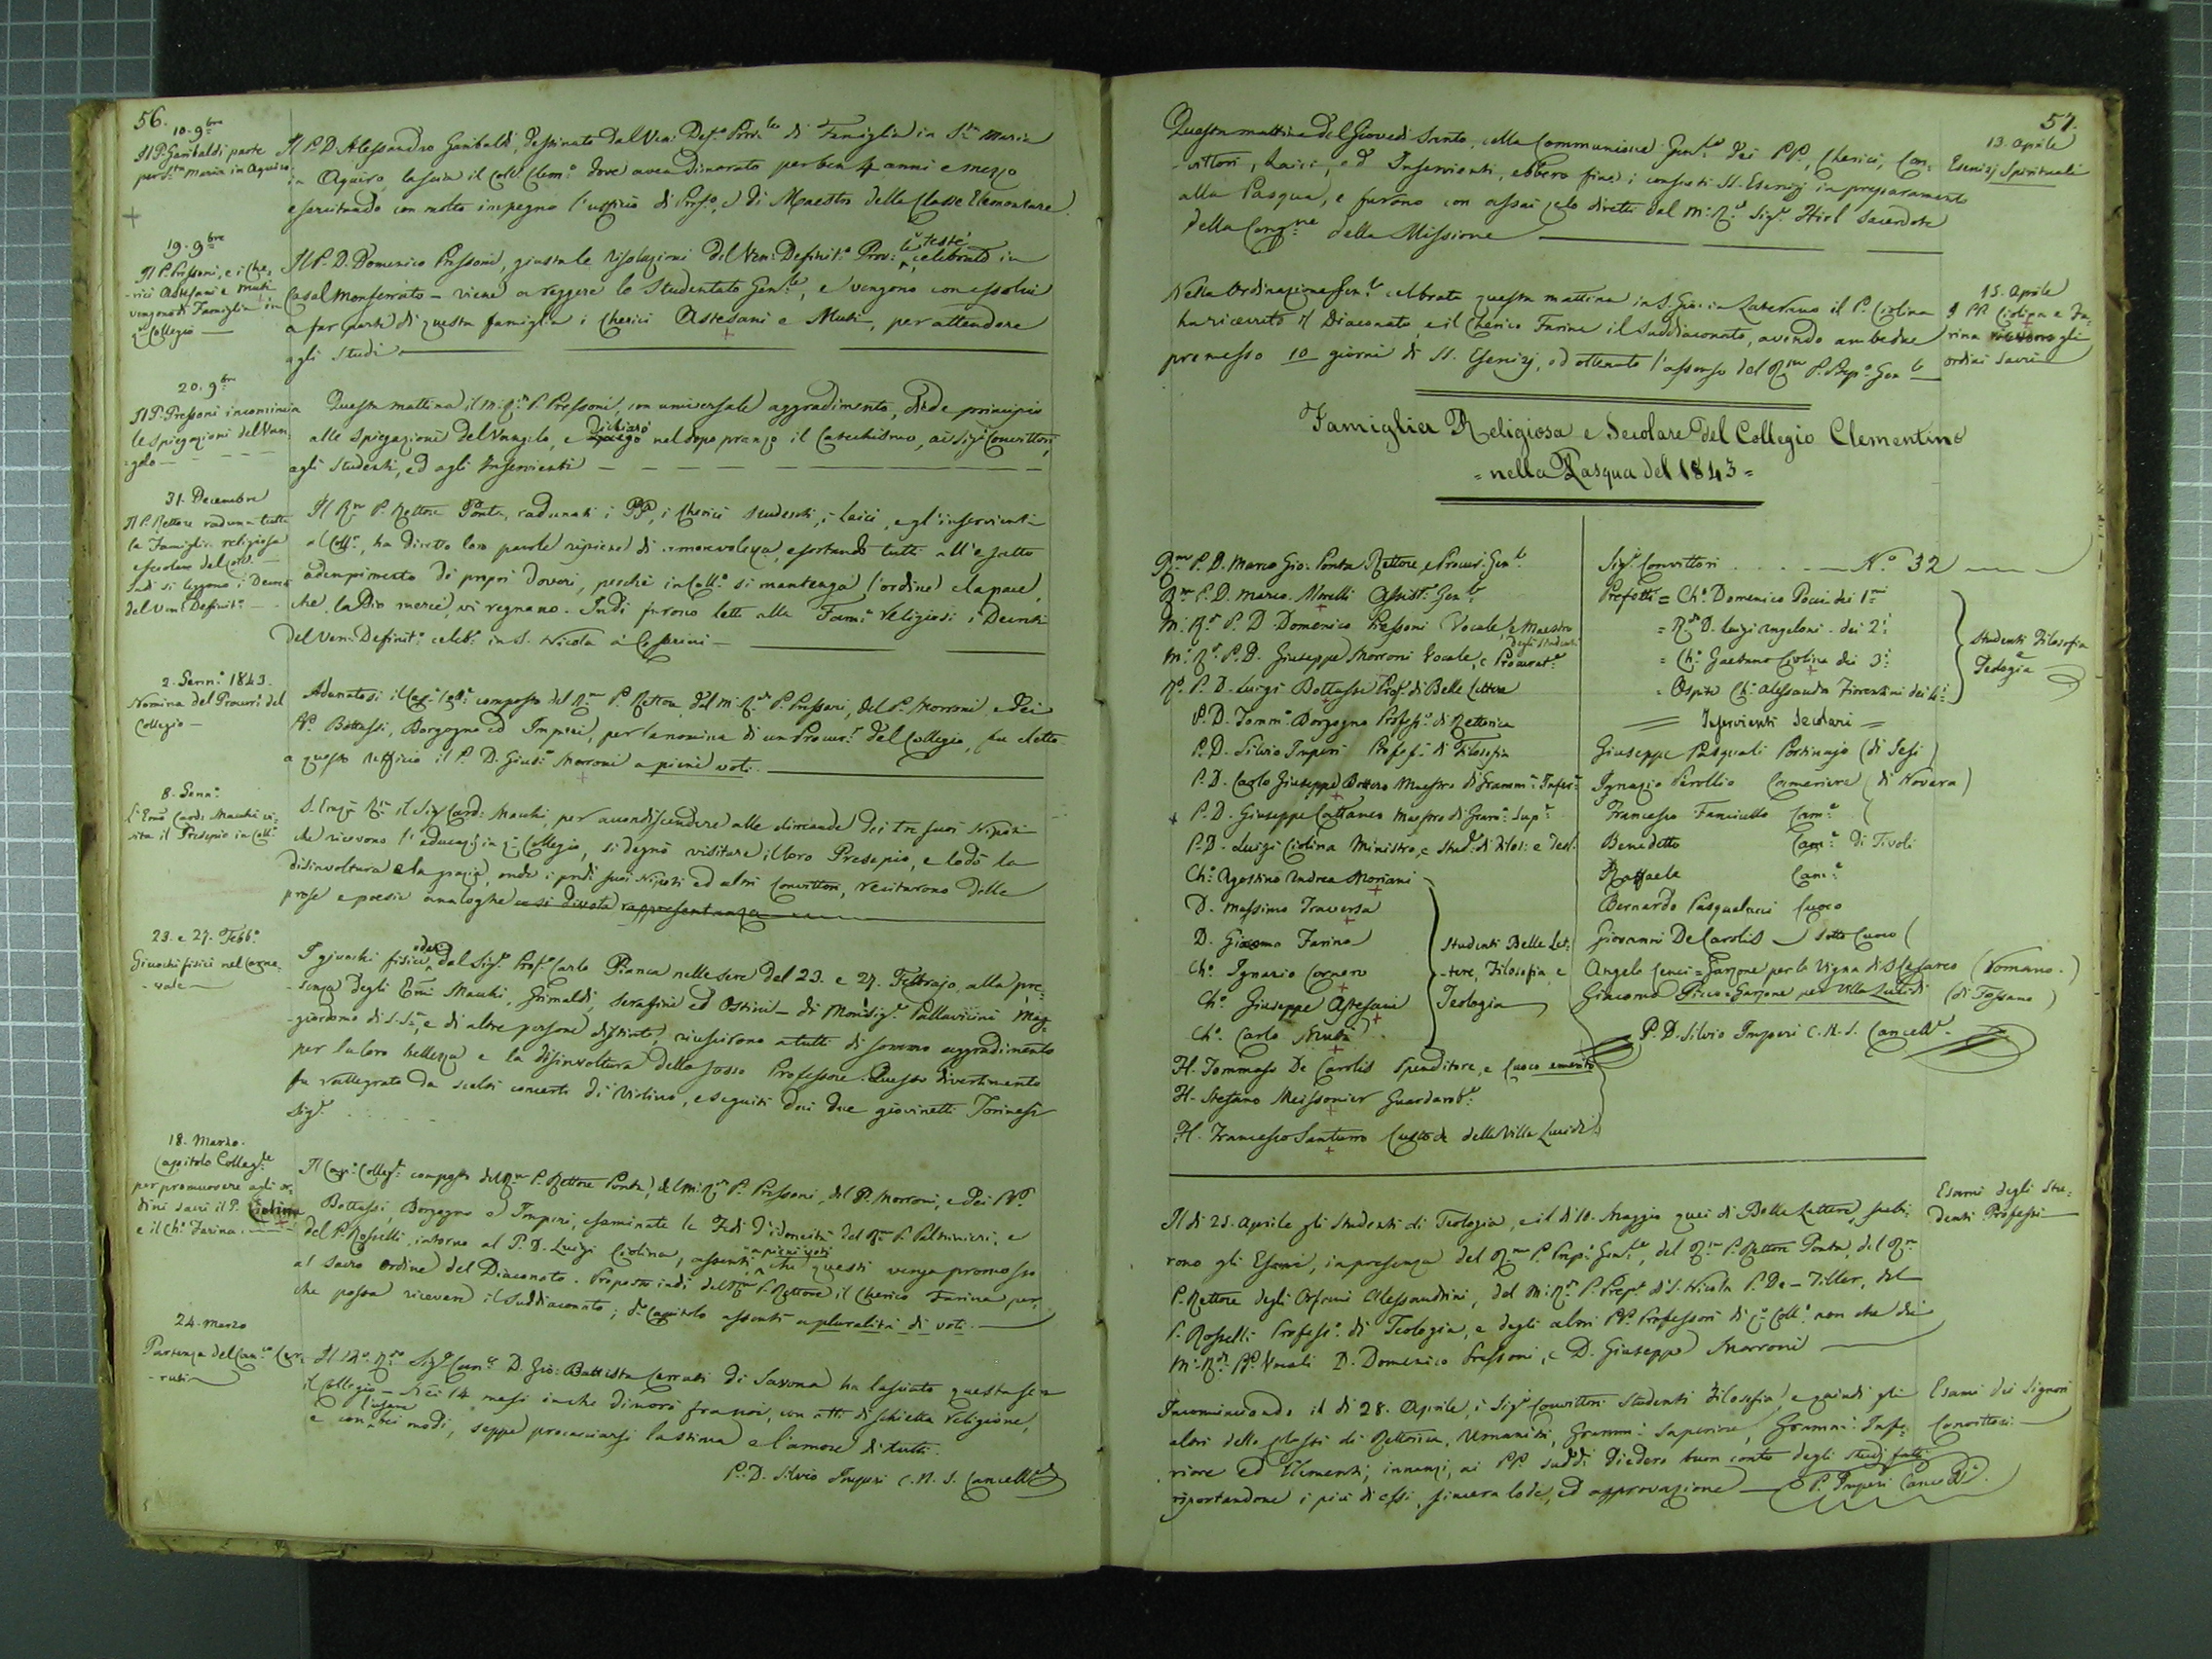 56.
10. 9bre
Il P. Garibaldi parte
per S.ta Maria in Aquiro
Il P. D. Alessandro Garibaldi, destinato dal Ven. Def.o Prov.le di Famiglia in S.ta Maria
in Aquiro, lascia il Coll. Clem.o dove avea dimorato per ben 4 anni e mezzo
esercitando con molto impegno l'uffizio di Prof.e, e di Maestro della Classe Elementare.
19. 9bre
Il P. Pressoni, e i Che-
-rici Astesani e Muti
vengono di Famiglia in
q.o Collegio —
Il P. D. Domenico Pressoni, giusta le risoluzioni del Ven. Definit.o Prov.le testè celebrato in
Casal Monferrato — viene a reggere lo Studentato Gen.le, e vengono con essolui
a far parte di questa famiglia i Cherici Astesani e Muti, per attendere
agli studi —
20. 9bre
Il P. Pressoni incomincia
le spiegazioni del Van-
-gelo —
Questa mattina il m. R.do P. Pressoni, con universale aggradimento, diede principio
alle spiegazioni del Vangelo, e dichiarò nel dopo pranzo il Catechismo, ai Sig.i Convittori,
agli Studenti, ed agli Inservienti —
31. Decembre
Il P. Rettore raduna tutta
la Famiglia religiosa
e secolare del Coll.
Indi si leggono i Decreti
del Ven. Definit.o —
Il R.mo P. Rettore Ponta, radunati i PP., i Cherici studenti, i Laici, e gl'inservienti
al Coll.o, ha diretto loro parole ripiene di amorevolezza, esortando tutti all'esatto
adempimento de' propri doveri, perchè in Coll.o si mantenga l'ordine e la pace,
che, la Dio mercè, vi regnano. Indi furono letti alla Fam.a Religiosi i Decreti
del Ven. Definit.o celeb.o in S. Nicola a' Cesarini —
2. Genn.o 1843.
Nomina del Procur.e del
Collegio —
Adunatosi il Cap.o Coll.e composto del R.mo P. Rettore, del m. R.do P. Pressoni, del P. Morroni, e dei
PP. Bottassi, Borgogno ed Imperi, per la nomina di un Procur.e del Collegio, fu eletto
a questo uffizio il P. D. Gius.e Morroni a pieni voti.
8. Genn.o
L'Emo Card. Macchi vi-
-sita il Presepio in Coll.o
S. Emza Rma il Sig. Card. Macchi, per accondiscendere alle dimande dei tre suoi Nipoti
che ricevono l'educaz.e in q.o Collegio, si degnò visitare il loro Presepio, e lodò la
disinvoltura e la grazia, onde i predi suoi Nipoti ed altri Convittori, recitarono delle
prose e poesie analoghe a sì divota rappresentanza
23. e 27. Febb.o
Giuochi fisici nel Carne-
-vale —
I giuochi fisici dati dal Sig.r Prof.e Carlo Bianca nelle sere del 23. e 27. Febbrajo, alla pre-
-senza degli Emi Macchi, Grimaldi, Serafini ed Ostini — di Monsig.r Pallavicini Mag-
-giordomo di S. S.tà, e di altre persone distinte, riuscirono a tutti di sommo aggradimento
per la loro bellezza e la disinvoltura dello stesso Professore. Questo divertimento
fu rallegrato da scelti concerti di Violino, eseguiti dai due giovinetti Torinesi
Sig.i . . . . .
18. Marzo.
Capitolo Colleg.le
per promuovere agli or-
dini sacri il P. Ciolina
e il Ch.o Farina.
Il Cap.o Colleg.e composto del R.mo P. Rettore Ponta, del m. R.do P. Pressoni, del P. Morroni, e dei PP.
Bottassi, Borgogno ed Imperi, esaminate le Fedi d'idoneità del R.mo P. Paltrinieri, e
del P. Rosselli, intorno al P. D. Luigi Ciolina, assentì a pieni voti che questi venga promosso
al Sacro Ordine del Diaconato. Proposto indi dal R.mo P. Rettore il Cherico Farina, per-
che possa ricevere il Suddiaconato; il Capitolo assentì a pluralità di voti. —
24. Marzo
Partenza del Can.co Cer-
-ruti
Il M.o R.do Sig.r Can.co D. Gio: Battista Cerruti di Savona ha lasciato questa sera
il Collegio — Nei 14 mesi in che dimorò fra noi, con atti di schietta religione,
e con l'usare bei modi, seppe procacciarsi la stima e l'amore di tutti.
P. D. Silvio Imperi C. R. S. Cancell.e
57.
13. Aprile
Esercizj Spirituali
Questa mattina del Giovedì Santo, colla Communione Gen.le dei PP., Cherici, Con-
-vittori, Laici, ed Inservienti, ebbero fine i consueti SS. Esercizj in preparamento
alla Pasqua, e furono con assai zelo diretti dal m. R.do Sig.r Stiol Sacerdote
della Cong.ne della Missione —
15. Aprile
I PP. Ciolina e Fa-
rina ricevono gli
ordini Sacri
Nella Ordinazione Gen.le celebrata questa mattina in S. Gio: in Laterano il P. Ciolina
ha ricevuto il Diaconato, e il Cherico Farina il Suddiaconato, avendo ambedue
premesso 10 giorni di SS. Esercizj, ed ottenuto l'assenso del R.mo P. Prep.o Gen.le
Famiglia Religiosa e Secolare del Collegio Clementino
= nella Pasqua del 1843 =
R.mo P. D. Marco Gio: Ponta Rettore, e Procur. Gen.le
R.mo P. D. Marco Morelli Assist.e Gen.le
M. R.do P. D. Domenico Pressoni Vocale, e Maestro degli Studenti
M. R.do P. D. Giuseppe Morroni Vocale, e Procurat.e
R.do P. D. Luigi Bottassi Prof.e di Belle Lettere
P. D. Tomm.o Borgogno Profess.e di Rettorica
P. D. Silvio Imperi Profess.e di Filosofia
P. D. Carlo Giuseppe Bottero Maestro di Gramm.a Infer.e
P. D. Giuseppe Cattaneo Maestro di Gram.a Sup.e
P. D. Luigi Ciolina Ministro, e Stud.e di Filos. e Teol.
Ch.o Agostino Andrea Moriani
D. Massimo Traversa
D. Giacomo Farina
Ch.o Ignazio Cornero
Ch.o Giuseppe Astesani
Ch.o Carlo Muti
Studenti Belle Let-
-tere, Filosofia, e
Teologia
H. Tommaso De Carolis Spenditore, e Cuoco emerito
H. Stefano Meissonier Guardarob.e
H. Francesco Santurro Custode della Villa Lucidi
Sig.i Convittori . . . . . N.o 32
Prefetti = Ch.o Domenico Pucci dei 1.mi
= R.do D. Luigi Angeloni dei 2.i
= Ch.o Gaetano Ciolina dei 3.i
= Ospite Ch.o Alessandro Fiorentini dei 4.i
Studenti Filosofia
e Teologia
= Inservienti Secolari =
Giuseppe Pasquali Portinajo (di Jesi)
Ignazio Perollio Cameriere (di Novara)
Francesco Famicello Cam.e
Benedetto Cam.e di Tivoli
Raffaele Cam.e
Bernardo Pasqualucci Cuoco
Giovanni De Carolis Sotto Cuoco
Angelo Cenci = Garzone per la Vigna di S. Cesareo (Romano.)
Giacomo Picco = Garzone per Villa Lucidi (di Fossano)
P. D. Silvio Imperi C. R. S. Cancell.e
Esami degli Stu-
denti Professi
Il dì 25. Aprile gli Studenti di Teologia, e il dì 10. Maggio quei di Belle Lettere, subi-
rono gli Esami, in presenza del R.mo P. Prep.o Gen.le, del R.mo P. Rettore Ponta, del R.mo
P. Rettore degli Orfani Alessandrini, del M. R.do P. Prep.o di S. Nicola P. De-Filler, del
P. Rosselli Profess.e di Teologia, e degli altri PP. Professori di q.o Coll.o non che dei
M. R.di PP. Vocali D. Domenico Pressoni, e D. Giuseppe Morroni —
Esami dei Signori
Convittori —
Incominciando il dì 28. Aprile, i Sig.i Convittori Studenti Filosofia, e quindi gli
altri delle classi di Rettorica, Umanità, Gramm.a Superiore, Gramm.a Infe-
riore ed Elementi, innanzi, ai PP. sudd.i diedero buon conto degli studj fatti
riportandone i più di essi, sincera lode, ed approvazione — P. Imperi Cancell.e